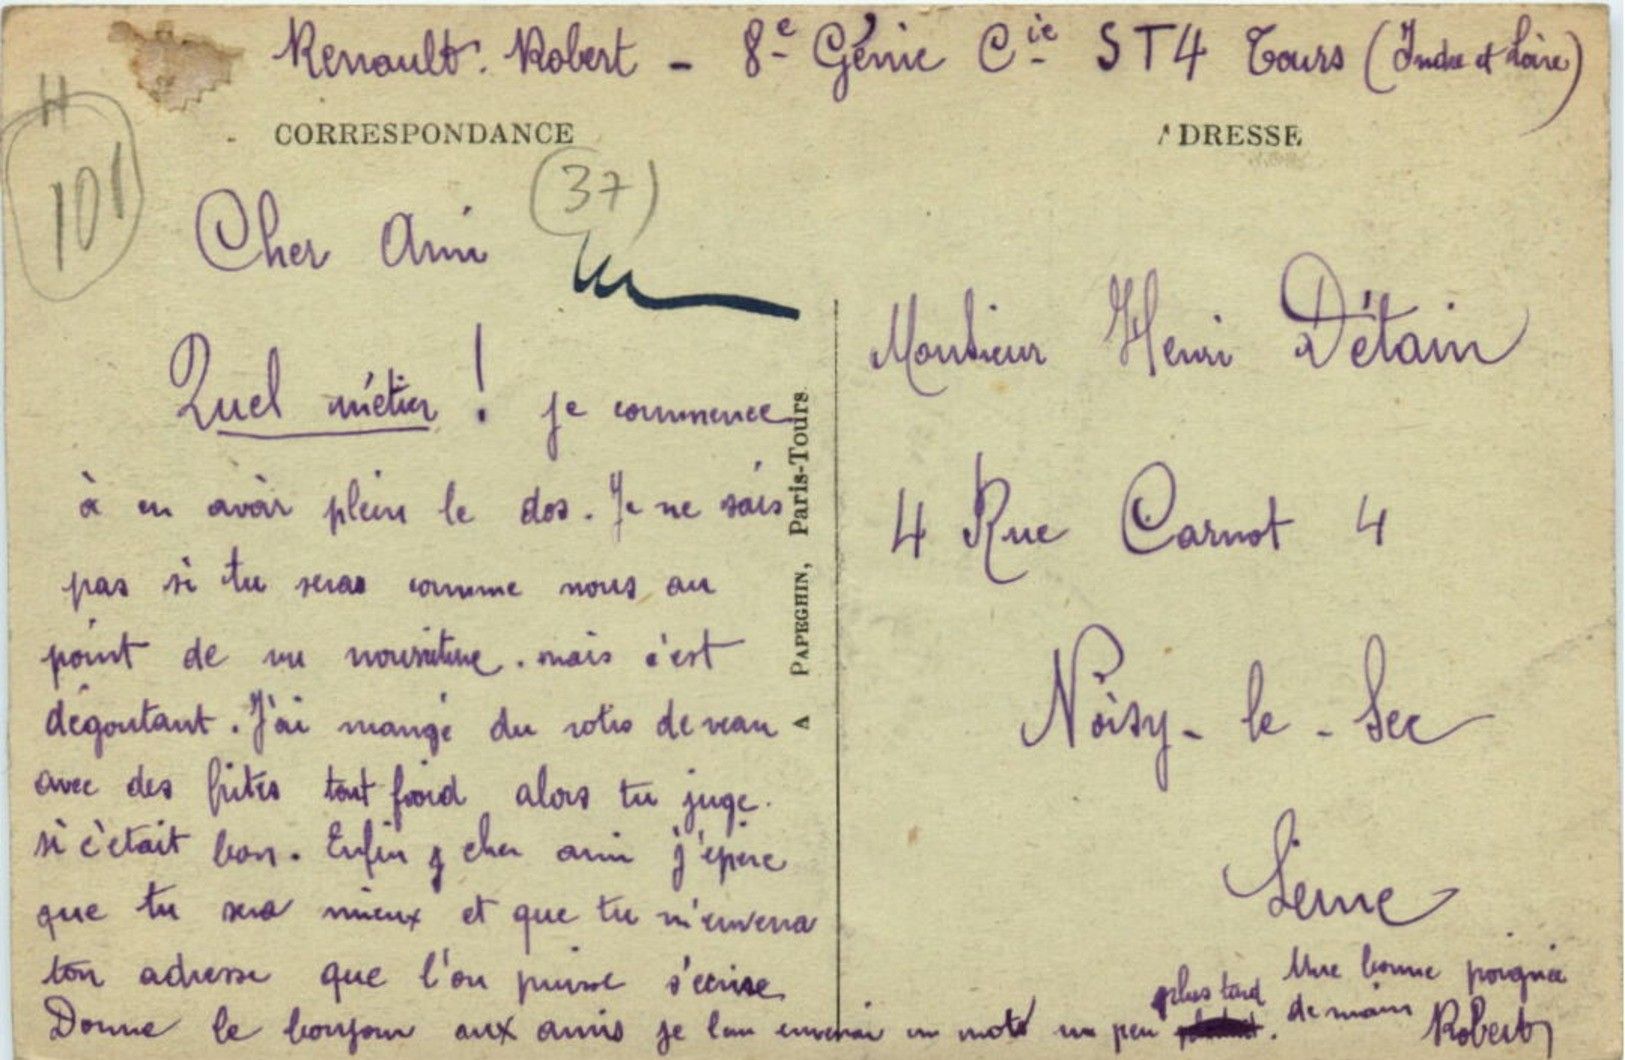 Renault. Robert - 8e Génie Cie ST4 Tours (Indre et Loire)
CORRESPONDANCE
ADRESSE
H
101
(37)
Cher Ami
Quel métier ! je commence
à en avoir plein le dos. Je ne sais
pas si tu seras comme nous au
point de vu nourriture. mais c'est
dégoutant. J'ai mangé du rotis de veau
avec des frites tout froid alors tu juge.
si c'était bon. Enfin, cher ami j'épère
que tu sera mieux et que tu m'enverra
ton adresse que l'on puisse s'écrire
Donne le bonjour aux amis je leur enverrai un mot un peu plus tard.
PAPEGHIN, Paris-Tours
Monsieur Henri Détain
4 Rue Carnot 4
Noisy-le-Sec
Seine
Une bonne poignée
de main
Robert